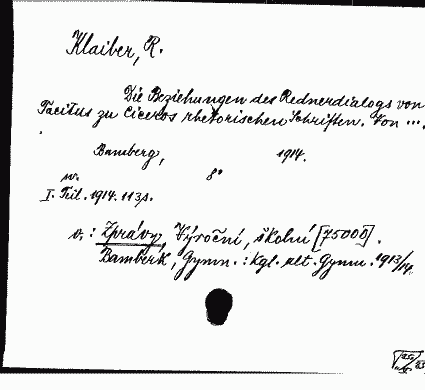 Klaiber, R.
Die Beziehungen des Rednerdialogs von
Tacitus zu Ciceros rhetorischen Schriften. Von ...
Bamberg, 1914.
w. 8°
I. Teil. 1914. 113 s.
v.: Zprávy, Výroční, školní [75000].
Bamberk, Gymn.: Kgl. alt. Gymn. 1913/14.